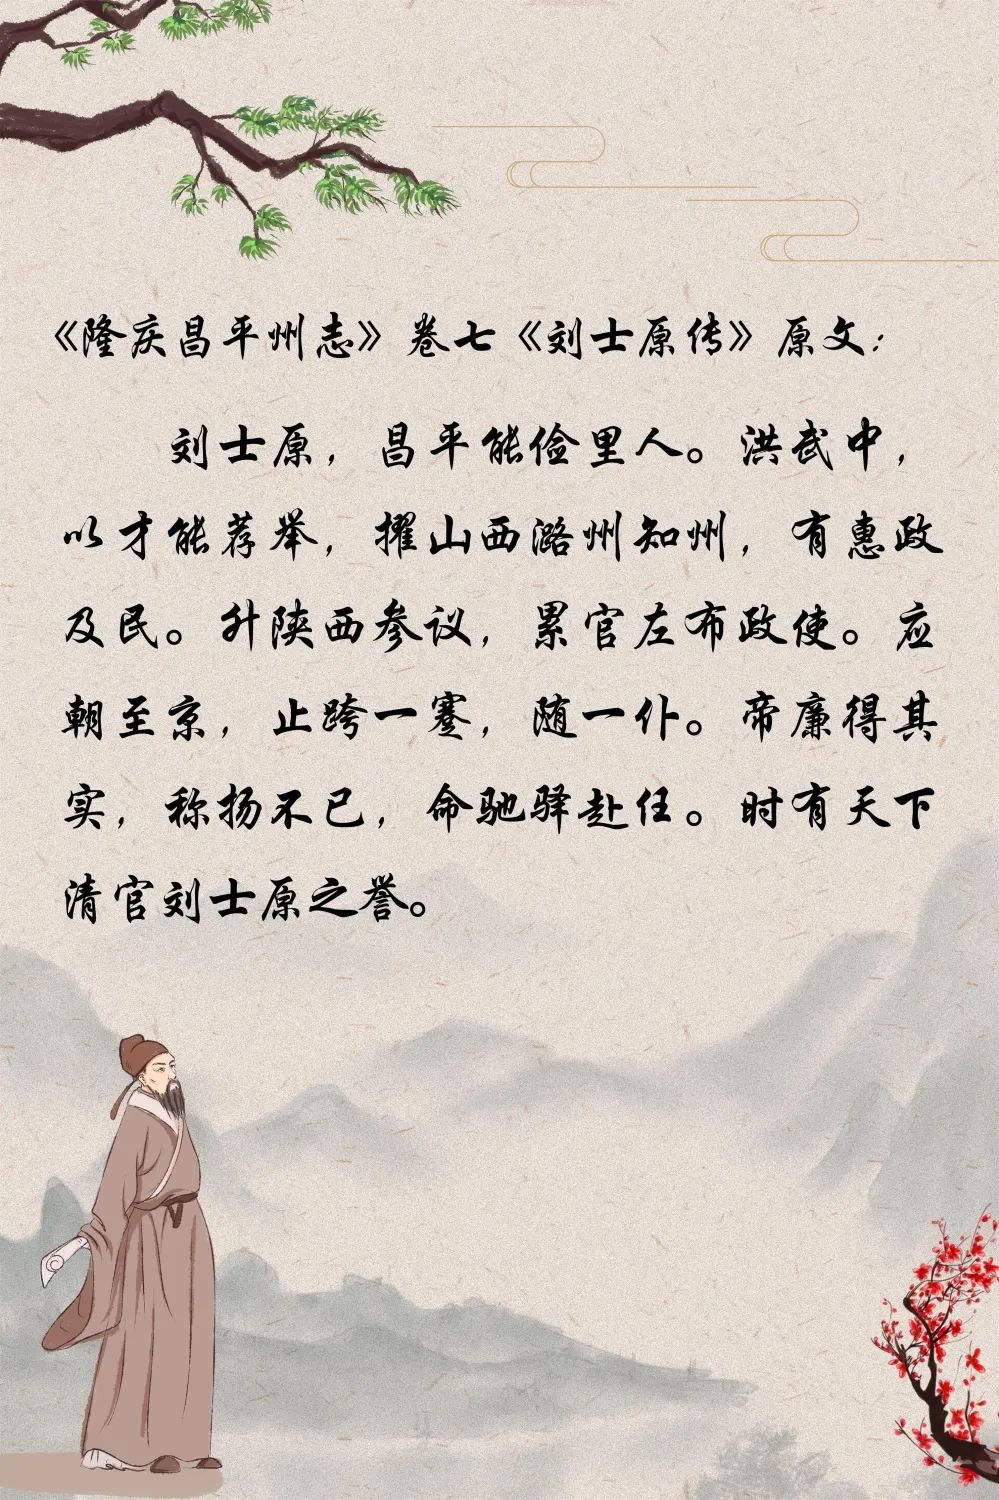 《隆庆昌平州志》卷七《刘士原传》原文：
刘士原，昌平能俭里人。洪武中，
以才能荐举，擢山西潞州知州，有惠政
及民。升陕西参议，累官左布政使。应
朝至京，止跨一蹇，随一仆。帝廉得其
实，称扬不已，命驰驿赴任。时有天下
清官刘士原之誉。